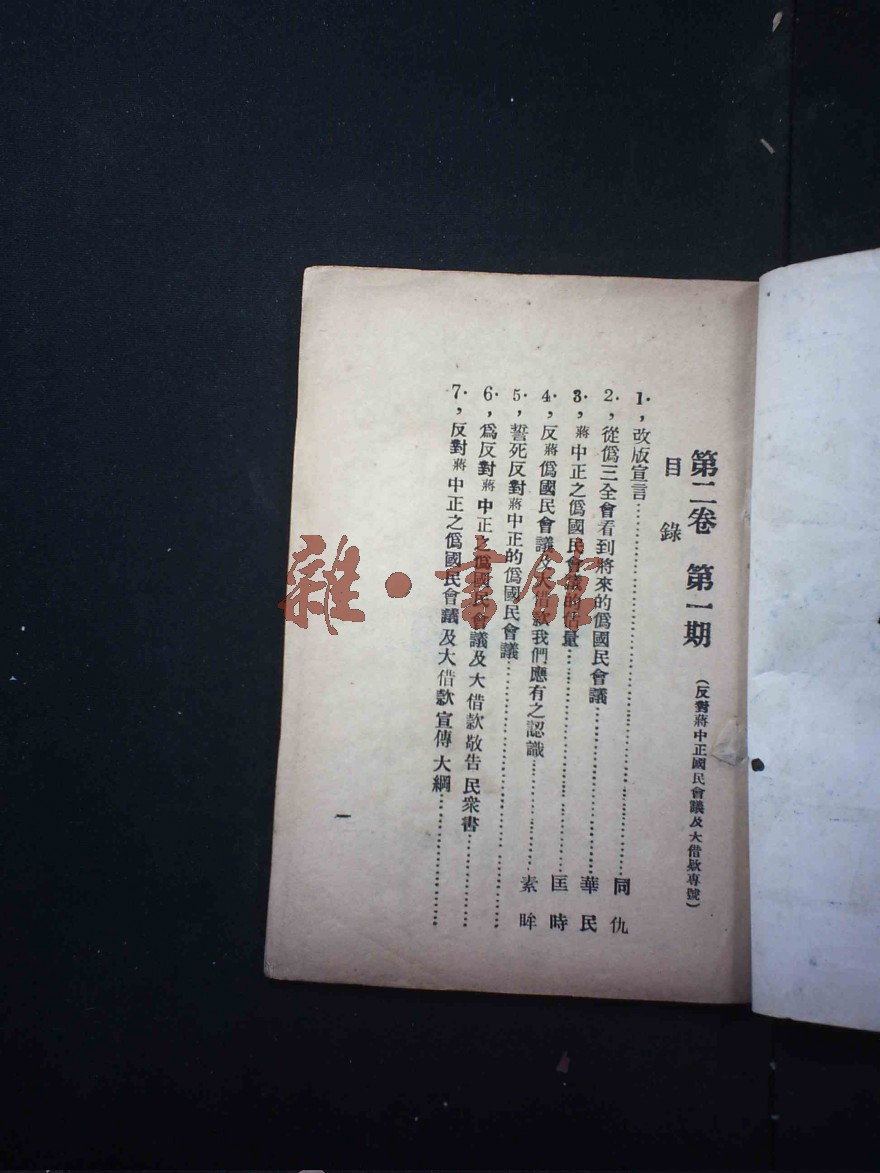 第二卷　第一期　（反對蔣中正國民會議及大借欵專號）
目　錄
1·，改版宣言……………同仇
2·，從僞三全會看到將來的僞國民會議……………華民
3·，蔣中正之僞國民會議的估量……………匡時
4·，反蔣僞國民會議及大借款我們應有之認識……………素眸
5·，誓死反對蔣中正的僞國民會議……………
6·，爲反對蔣中正之僞國民會議及大借款敬告民衆書……………
7·，反對蔣中正之僞國民會議及大借款宣傳大綱……………
一
雜·書館